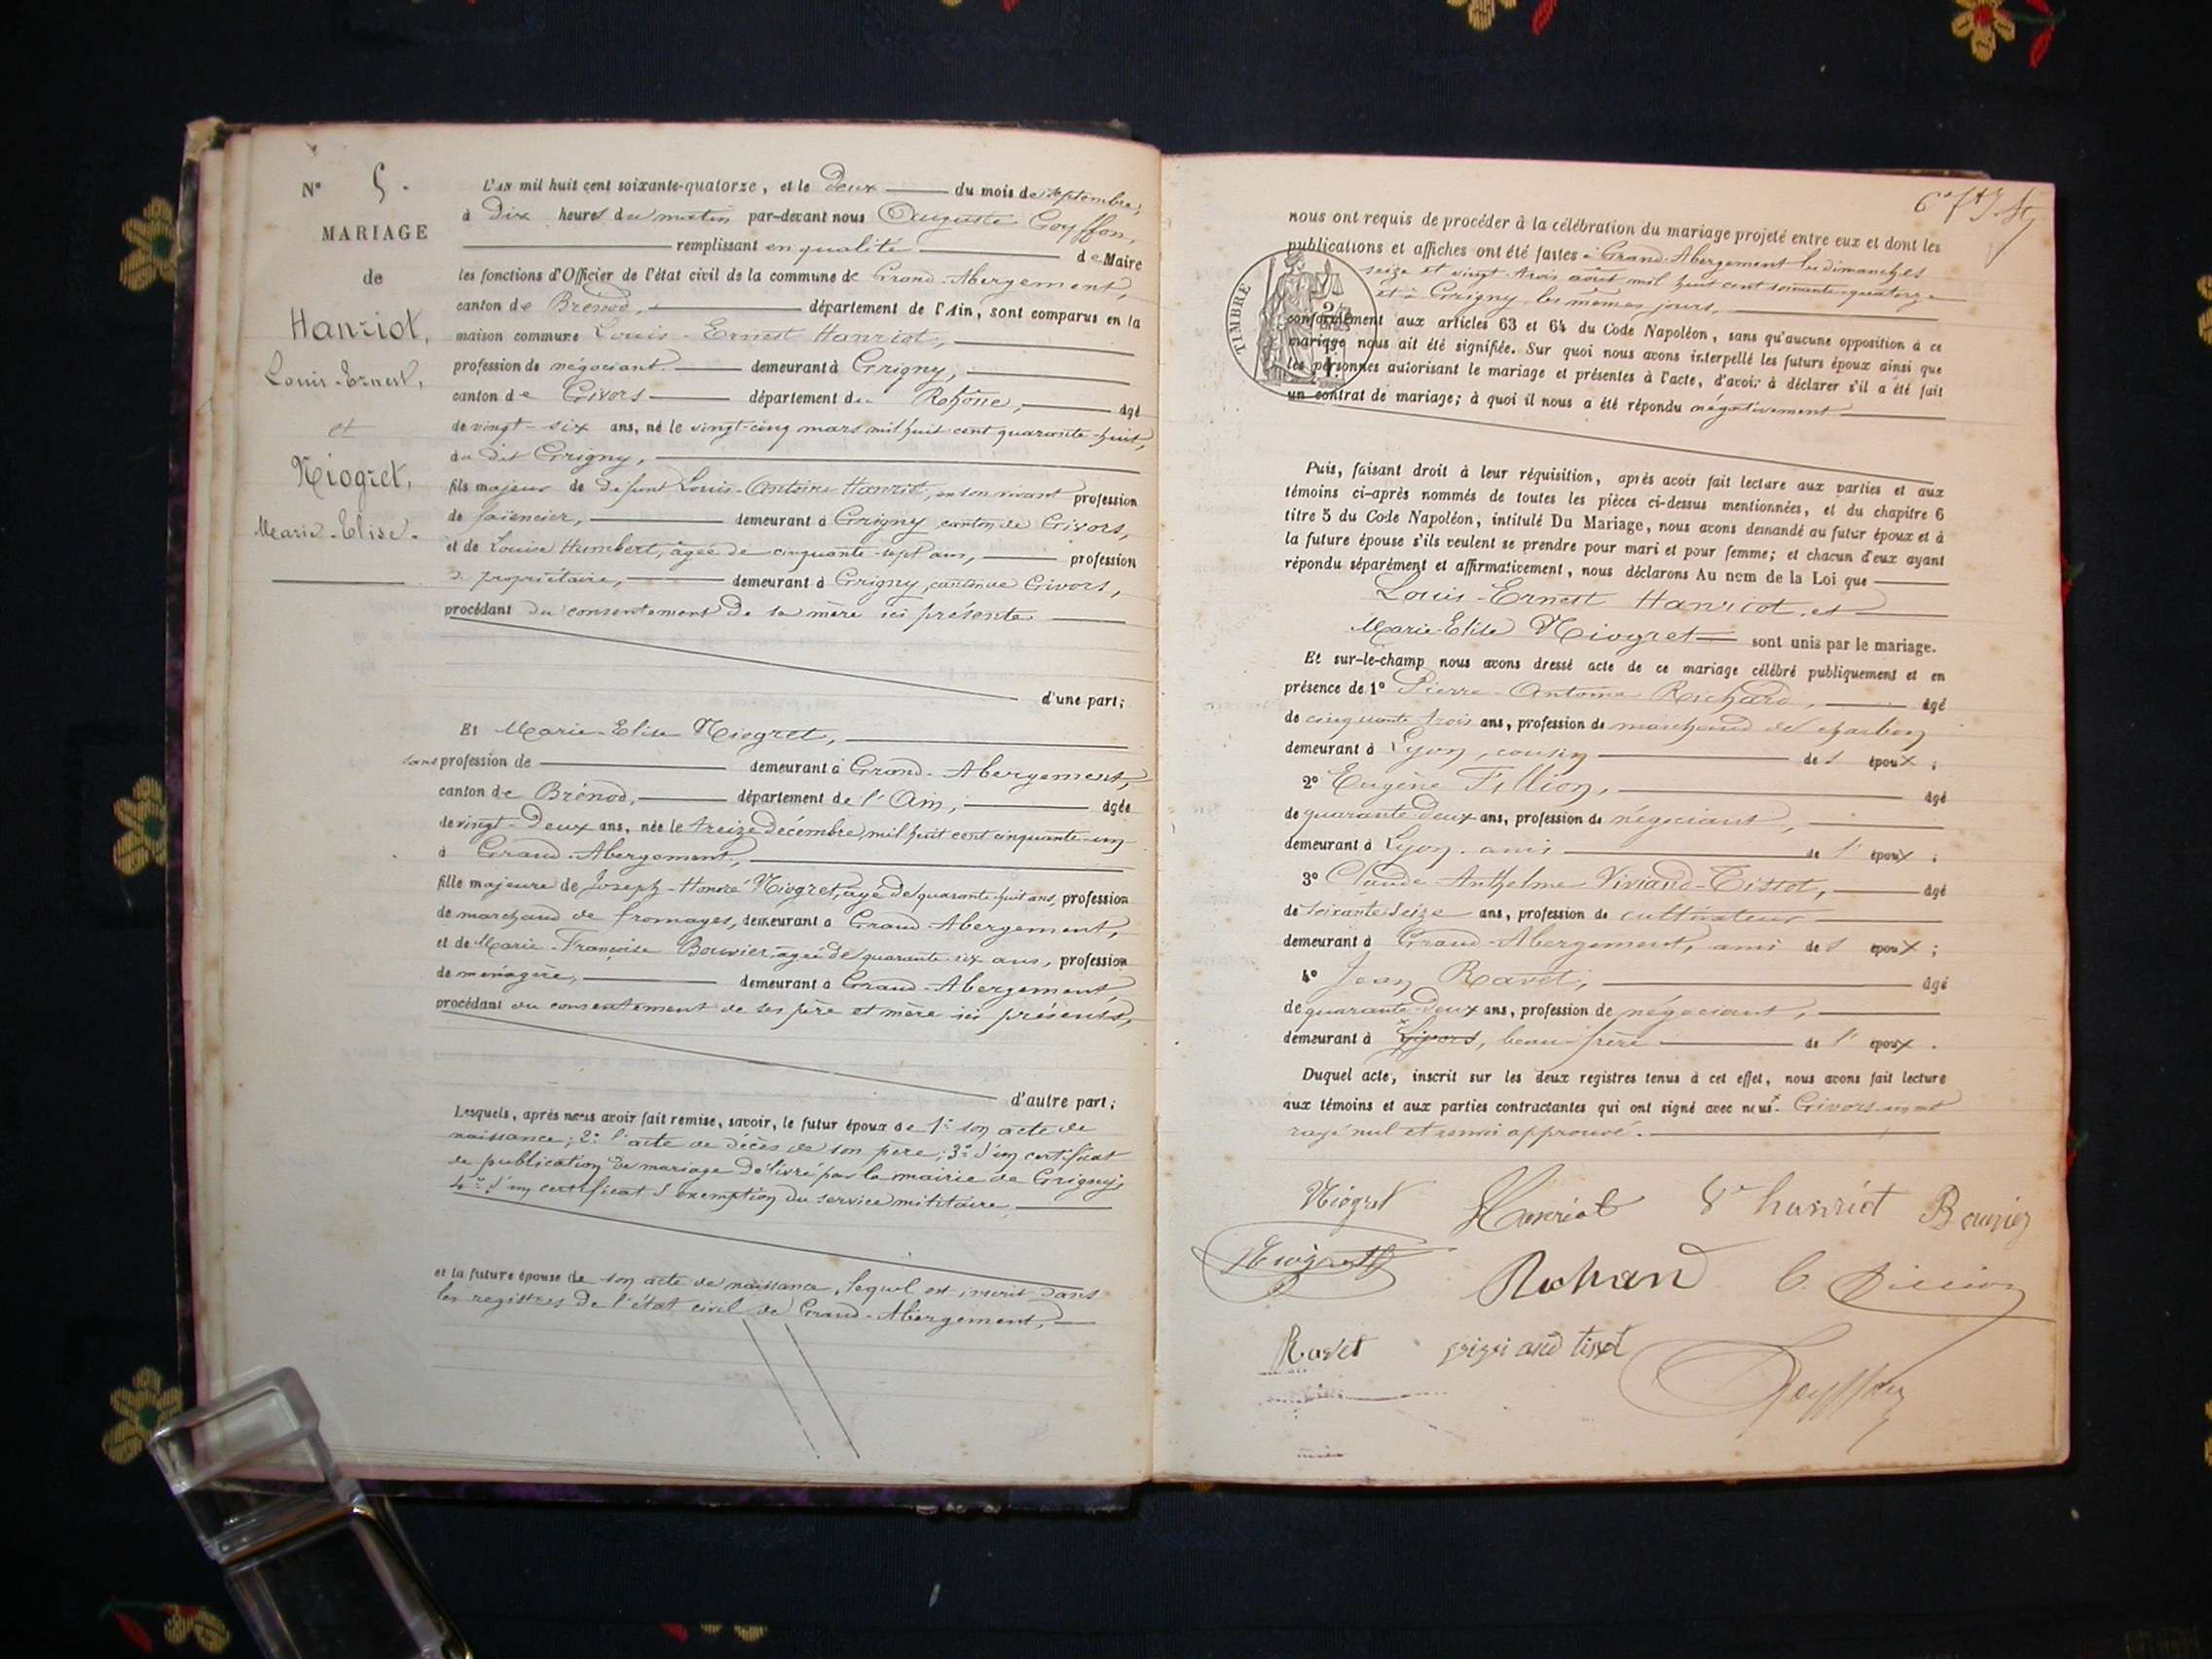 N° 5.
MARIAGE
de
Hanriot,
Louis-Ernest,
et
Niogret,
Marie-Elise.
L'AN mil huit cent soixante-quatorze, et le Deux du mois de septembre,
à Dix heures du matin par-devant nous Auguste Goyffon,
remplissant en qualité de Maire
les fonctions d'Officier de l'état civil de la commune de Grand-Abergement,
canton de Brénod, département de l'Ain, sont comparus en la
maison commune Louis-Ernest Hanriot,
profession de négociant demeurant à Grigny,
canton de Givors département du Rhône, âgé
de vingt-six ans, né le vingt-cinq mars mil huit cent quarante-huit,
au dit Grigny,
fils majeur de défunt Louis-Antoine Hanriot, en son vivant profession
de faïencier, demeurant à Grigny canton de Givors,
et de Louise Humbert, âgée de cinquante-sept ans, profession
de propriétaire, demeurant à Grigny, canton de Givors,
procédant du consentement de sa mère ici présente
d'une part;
Et Marie-Elise Niogret,
sans profession de demeurant à Grand-Abergement,
canton de Brénod, département de l'Ain, âgée
de vingt-Deux ans, née le treize Décembre mil huit cent cinquante-un
à Grand-Abergement,
fille majeure de Joseph-Honoré Niogret, âgé de quarante-huit ans, profession
de marchand de fromages, demeurant à Grand-Abergement,
et de Marie-Françoise Bouvier, âgée de quarante-six ans, profession
de ménagère, demeurant à Grand-Abergement,
procédant du consentement de ses père et mère ici présents,
d'autre part;
Lesquels, après nous avoir fait remise, savoir, le futur époux de 1° son acte de
naissance; 2° l'acte de décès de son père; 3° d'un certificat
de publication de mariage délivré par la mairie de Grigny;
4° d'un certificat d'exemption du service militaire,
et la future épouse de son acte de naissance, lequel est inscrit dans
les registres de l'état civil de Grand-Abergement,
nous ont requis de procéder à la célébration du mariage projeté entre eux et dont les
publications et affiches ont été faites à Grand-Abergement les dimanches
seize et vingt-trois août mil huit cent soixante-quatorze
et à Grigny les mêmes jours,
TIMBRE
conformément aux articles 63 et 64 du Code Napoléon, sans qu'aucune opposition à ce
mariage nous ait été signifiée. Sur quoi nous avons interpellé les futurs époux ainsi que
les personnes autorisant le mariage et présentes à l'acte, d'avoir à déclarer s'il a été fait
un contrat de mariage; à quoi il nous a été répondu négativement
Puis, faisant droit à leur réquisition, après avoir fait lecture aux parties et aux
témoins ci-après nommés de toutes les pièces ci-dessus mentionnées, et du chapitre 6
titre 5 du Code Napoléon, intitulé Du Mariage, nous avons demandé au futur époux et à
la future épouse s'ils veulent se prendre pour mari et pour femme; et chacun d'eux ayant
répondu séparément et affirmativement, nous déclarons Au nom de la Loi que
Louis-Ernest Hanriot et
Marie-Elise Niogret sont unis par le mariage.
Et sur-le-champ nous avons dressé acte de ce mariage célébré publiquement et en
présence de 1° Pierre-Antoine Richard, âgé
de cinquante trois ans, profession de marchand de charbon
demeurant à Lyon, cousin de l'époux;
2° Eugène Fillion, âgé
de quarante-deux ans, profession de négociant,
demeurant à Lyon, ami de l'époux;
3° Claude-Anthelme Viviand-Tissot, âgé
de soixante-seize ans, profession de cultivateur
demeurant à Grand-Abergement, ami de l'époux;
4° Jean Ravet, âgé
de quarante-deux ans, profession de négociant,
demeurant à Givors, beau-frère de l'époux.
Duquel acte, inscrit sur les deux registres tenus à cet effet, nous avons fait lecture
aux témoins et aux parties contractantes qui ont signé avec nous. Givors un mot
rayé nul et renvoi approuvé.
Niogret Hanriot Vve hanriot Bouvier
Niogret Richard E. Fillion
Ravet tissot
Goyffon